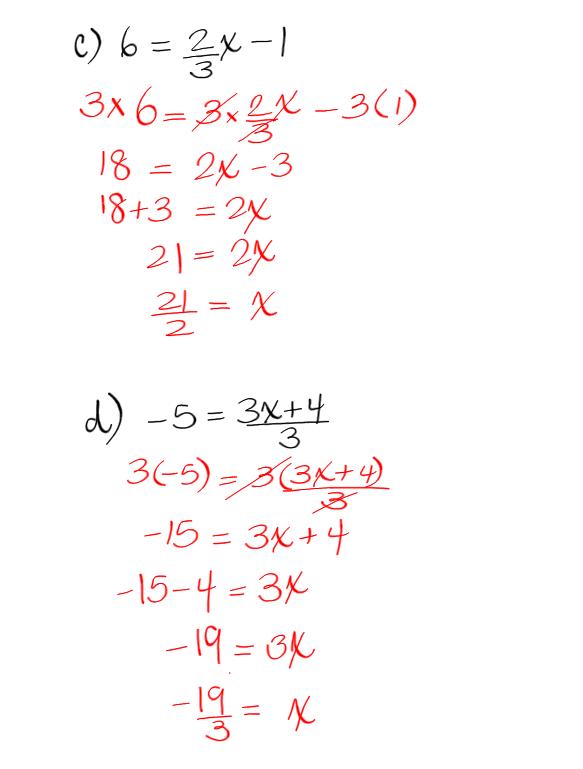 c) 6 = 2/3 x - 1
3 x 6 = 3 x 2/3 x - 3(1)
18 = 2x - 3
18+3 = 2x
21 = 2x
21/2 = x
d) -5 = 3x+4/3
3(-5) = 3(3x+4)/3
-15 = 3x+4
-15-4 = 3x
-19 = 3x
-19/3 = x